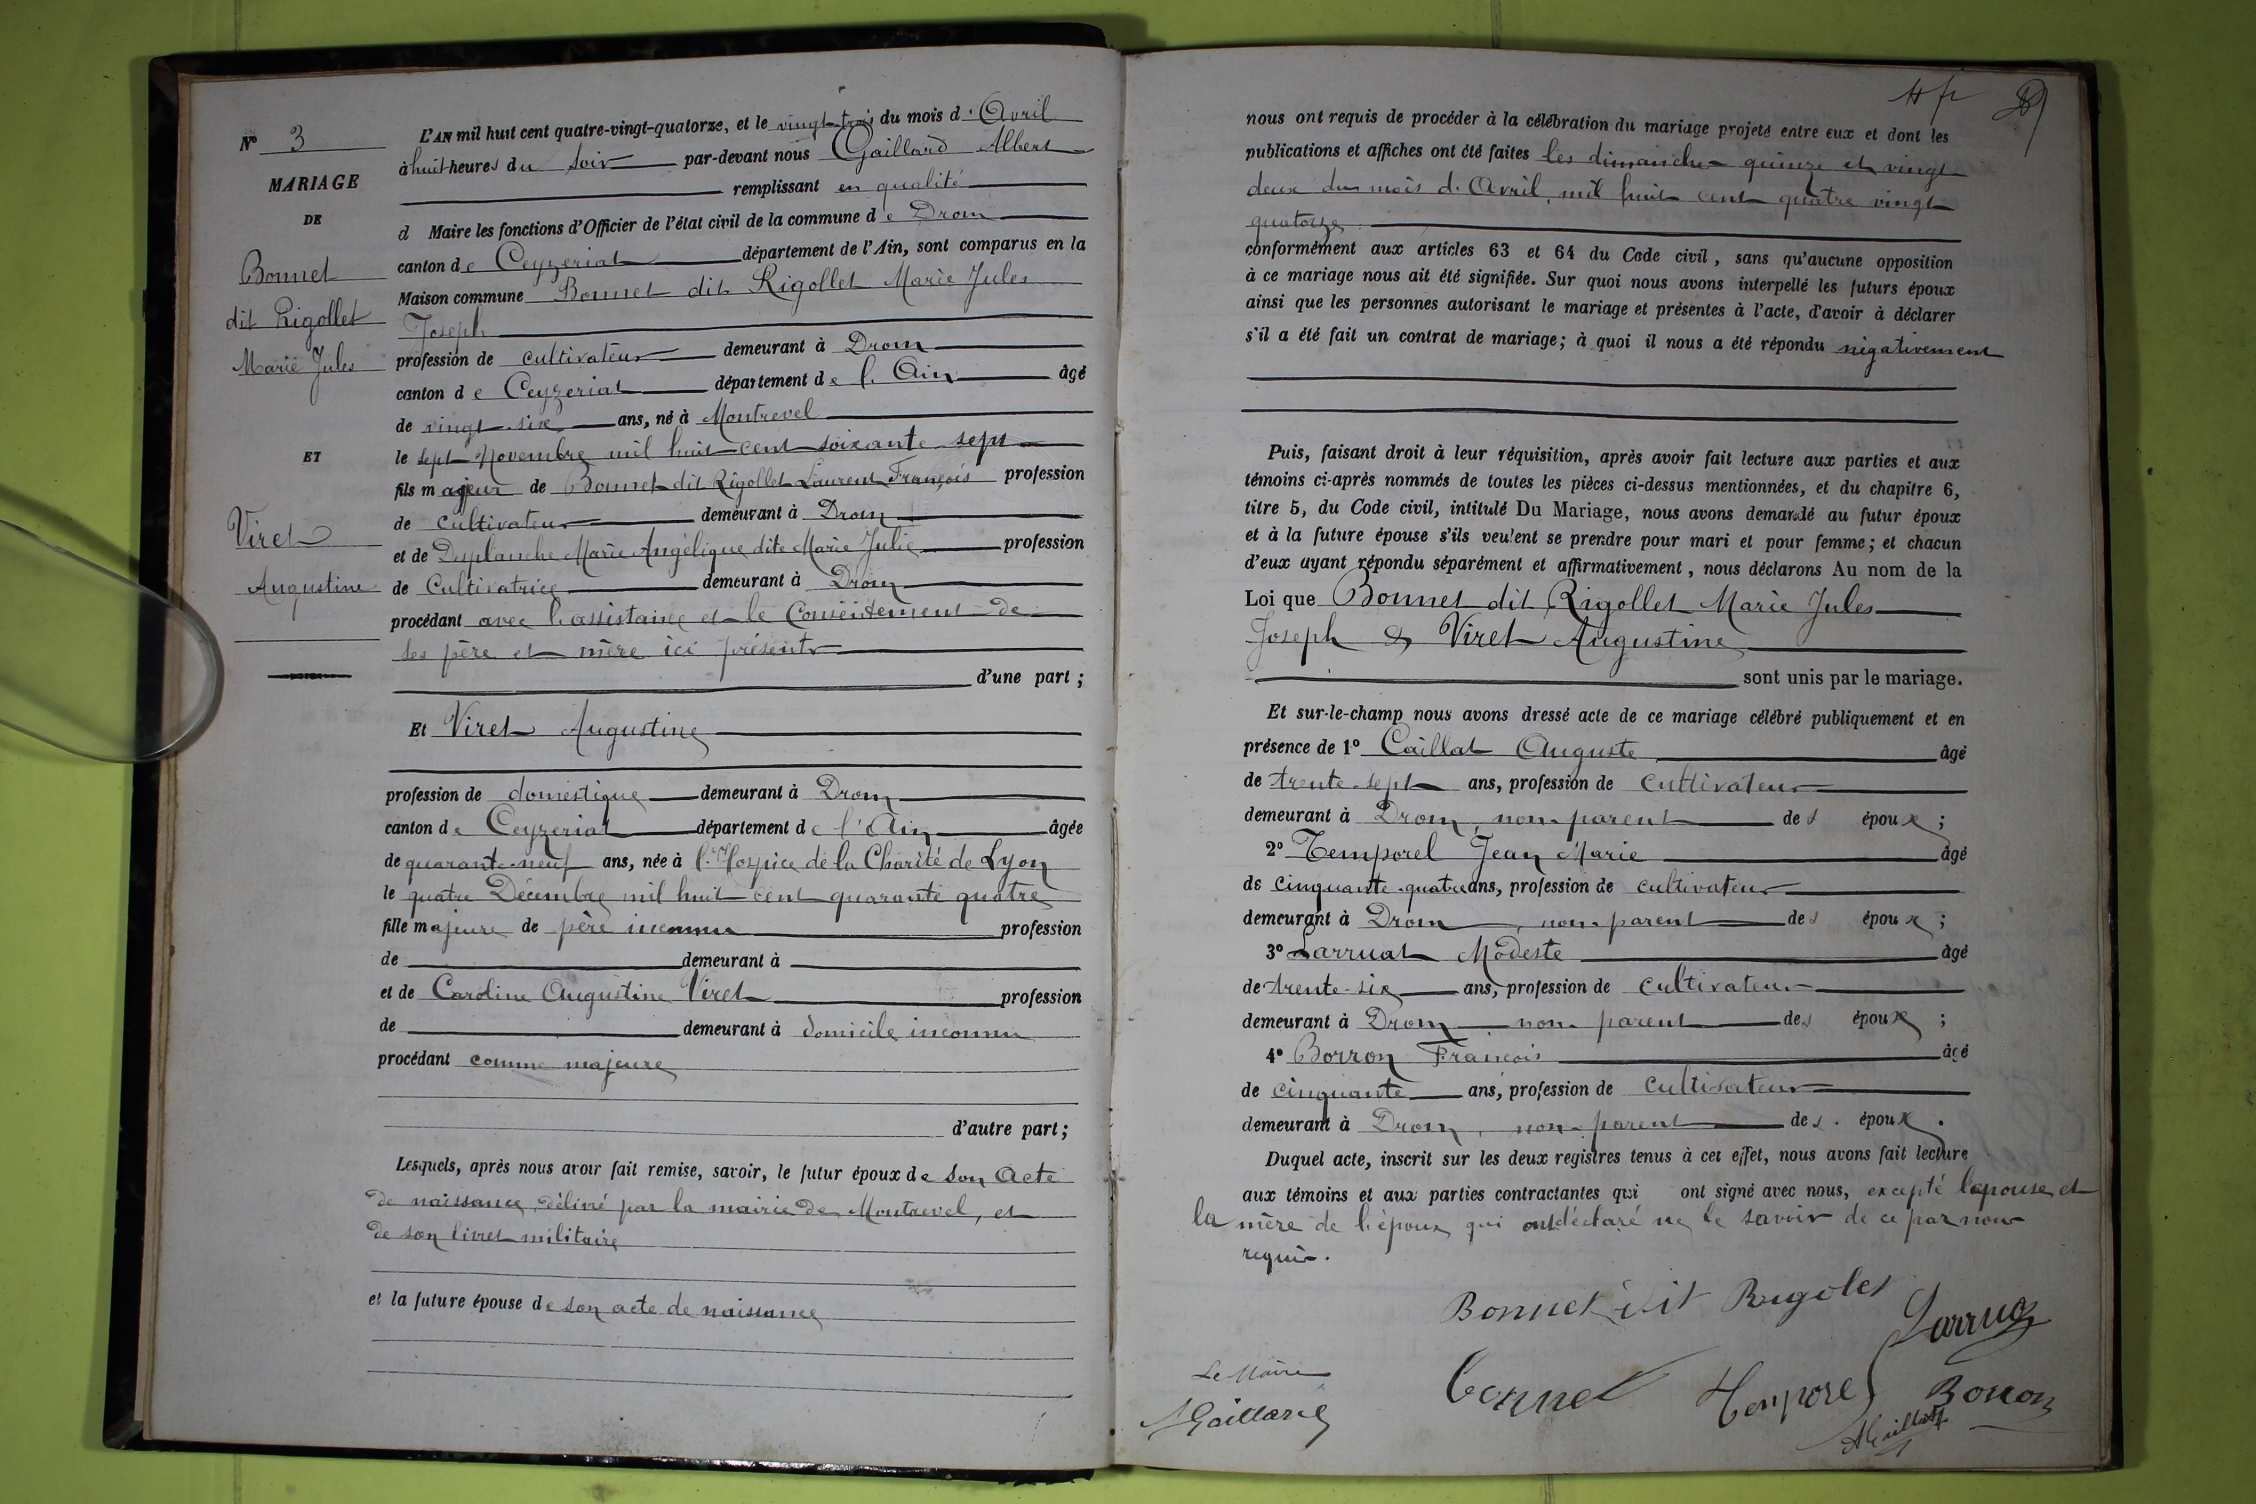 Nº 3
MARIAGE
DE
Bonnet
dit Rigollet
Marie Jules
ET
Viret
Augustine
L'AN mil huit cent quatre-vingt-quatorze, et le vingt-trois du mois d'Avril
à huit heures du Soir par-devant nous Gaillard Albert
remplissant en qualité
d Maire les fonctions d'Officier de l'état civil de la commune de Drom
canton de Ceyzeriat département de l'Ain, sont comparus en la
Maison commune Bonnet dit Rigollet Marie Jules
Joseph
profession de cultivateur demeurant à Drom
canton de Ceyzeriat département de l'Ain âgé
de vingt-six ans, né à Montrevel
le sept Novembre mil huit cent soixante sept
fils majeur de Bonnet dit Rigollet Laurent François profession
de cultivateur demeurant à Drom
et de Desplanche Marie Angélique dite Marie Julie profession
de Cultivatrice demeurant à Drom
procédant avec l'assistance et le Consentement de
ses père et mère ici présents
d'une part ;
Et Viret Augustine
profession de domestique demeurant à Drom
canton de Ceyzeriat département de l'Ain âgée
de quarante-neuf ans, née à l'Hospice de la Charité de Lyon
le quatre Décembre mil huit cent quarante quatre
fille majeure de père inconnu profession
de demeurant à
et de Caroline Augustine Viret profession
de demeurant à domicile inconnu
procédant comme majeure
d'autre part ;
Lesquels, après nous avoir fait remise, savoir, le futur époux de son Acte
de naissance délivré par la mairie de Montrevel, et
de son livret militaire
et la future épouse de son acte de naissance
nous ont requis de procéder à la célébration du mariage projeté entre eux et dont les
publications et affiches ont été faites les dimanches quinze et vingt
deux du mois d'Avril, mil huit cent quatre vingt
quatorze
conformément aux articles 63 et 64 du Code civil, sans qu'aucune opposition
à ce mariage nous ait été signifiée. Sur quoi nous avons interpellé les futurs époux
ainsi que les personnes autorisant le mariage et présentes à l'acte, d'avoir à déclarer
s'il a été fait un contrat de mariage ; à quoi il nous a été répondu négativement
Puis, faisant droit à leur réquisition, après avoir fait lecture aux parties et aux
témoins ci-après nommés de toutes les pièces ci-dessus mentionnées, et du chapitre 6,
titre 5, du Code civil, intitulé Du Mariage, nous avons demandé au futur époux
et à la future épouse s'ils veulent se prendre pour mari et pour femme ; et chacun
d'eux ayant répondu séparément et affirmativement, nous déclarons Au nom de la
Loi que Bonnet dit Rigollet Marie Jules
Joseph & Viret Augustine
sont unis par le mariage.
Et sur-le-champ nous avons dressé acte de ce mariage célébré publiquement et en
présence de 1º Caillat Auguste âgé
de trente-sept ans, profession de cultivateur
demeurant à Drom, non parent des époux ;
2º Temporel Jean Marie âgé
de cinquante-quatre ans, profession de cultivateur
demeurant à Drom, non parent des époux ;
3º Larruat Modeste âgé
de trente-six ans, profession de cultivateur
demeurant à Drom non parent des époux ;
4º Borron François âgé
de cinquante ans, profession de cultivateur
demeurant à Drom, non parent des époux.
Duquel acte, inscrit sur les deux registres tenus à cet effet, nous avons fait lecture
aux témoins et aux parties contractantes qui ont signé avec nous, excepté l'épouse et
la mère de l'époux qui ont déclaré ne le savoir de ce par nous
requis.
Bonnet dit Rigolet
Larruat
Le Maire
Bonnet Temporel Borron
AGaillard